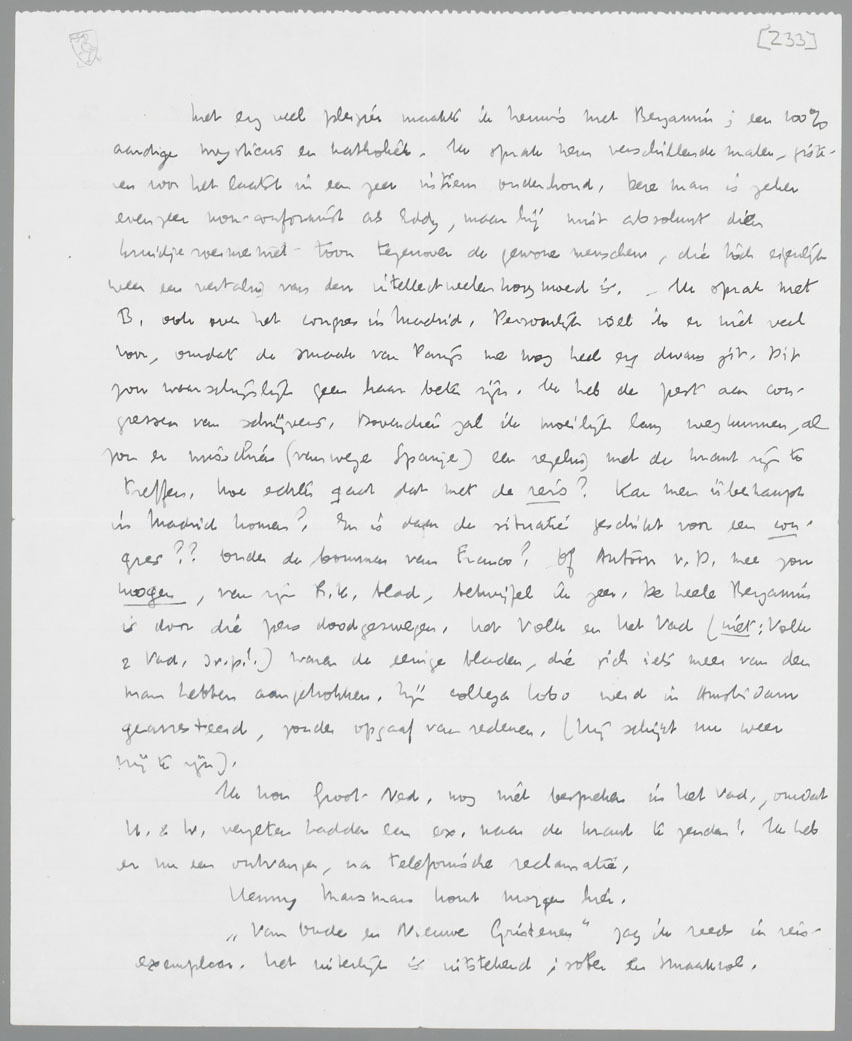 [233]
Met erg veel plezier maakte ik kennis met Benjamin; een 100%
aardige mysticus en katholiek. Ik sprak hem verschillende malen, giste-
ren voor het laatst in een zeer intiem onderhoud. Deze man is zeker
evenzeer non-conformist als Eddy, maar hij mist absoluut dien
kruidje-roer-me-niet-toon tegenover de gewone menschen, die tòch eigenlijk
weer een vertaling van den intellectueelen hoogmoed is. – Ik sprak met
B. ook over het congres in Madrid. Persoonlijk voel ik er niet veel
voor, omdat de smaak van Parijs me nog heel erg dwars zit. Dit
zou waarschijnlijk geen haar beter zijn. Ik heb de pest aan con-
gressen van schrijvers. Bovendien zal ik moeilijk lang weg kunnen, al
zou er misschien (vanwege Spanje) een regeling met de krant zijn te
treffen. Hoe echter gaat dat met de reis? Kan men überhaupt
in Madrid komen? En is daar de situatie geschikt voor een con-
gres?? Onder de bommen van Franco? Of Antoon v.D. mee zou
mogen, van zijn R.K. blad, betwijfel ik zeer. De heele Benjamin
is door die pers doodgezwegen. Het Volk en Het Vad (niet: Volk
& Vad, s.v.p.!) waren de eenige bladen, die zich iets meer van den
man hebben aangetrokken. Zijn collega Lobo werd in Amsterdam
gearresteerd, zonder opgaaf van redenen. (Hij schijnt nu weer
vrij te zijn).
Ik kon Groot-Ned. nog niet bespreken in het Vad., omdat
N. & W. vergeten hadden een ex. naar de krant te zenden! Ik heb
er nu een ontvangen, na telefonische reclamatie.
Henny Marsman komt morgen hier.
„Van Oude en Nieuwe Christenen" zag ik reeds in reis-
exemplaar. Het uiterlijk is uitstekend; sober en smaakvol.